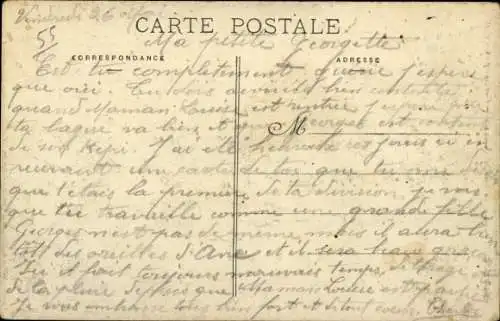 Vendredi 26
CARTE POSTALE
55
Ma petite Georgette
CORRESPONDANCE
ADRESSE
Es tu complètement j'espère
que oui. Tu dois avoir été bien contente
quand Maman Louise est rentrée j'espère que
ta bague va bien et Georges est content
M
de son képi. J'ai été heureuse ces jours ci en
recevant une carte de toi que tu me dis
que tu étais la première de ta division je vois
que tu travaille comme une grande fille
Georges n'est pas de même mais il aura
des oreilles d'Ane et il sera beau
Ici il fait toujours mauvais temps de
de la pluie depuis que Maman Louise est partie
Je vous embrasse tous bien fort et de tout coeur